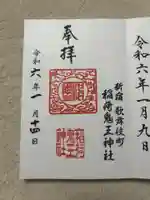 令和六年一月九日
新宿歌舞伎町
稲荷鬼王神社
奉拝
令和六年一月十四日